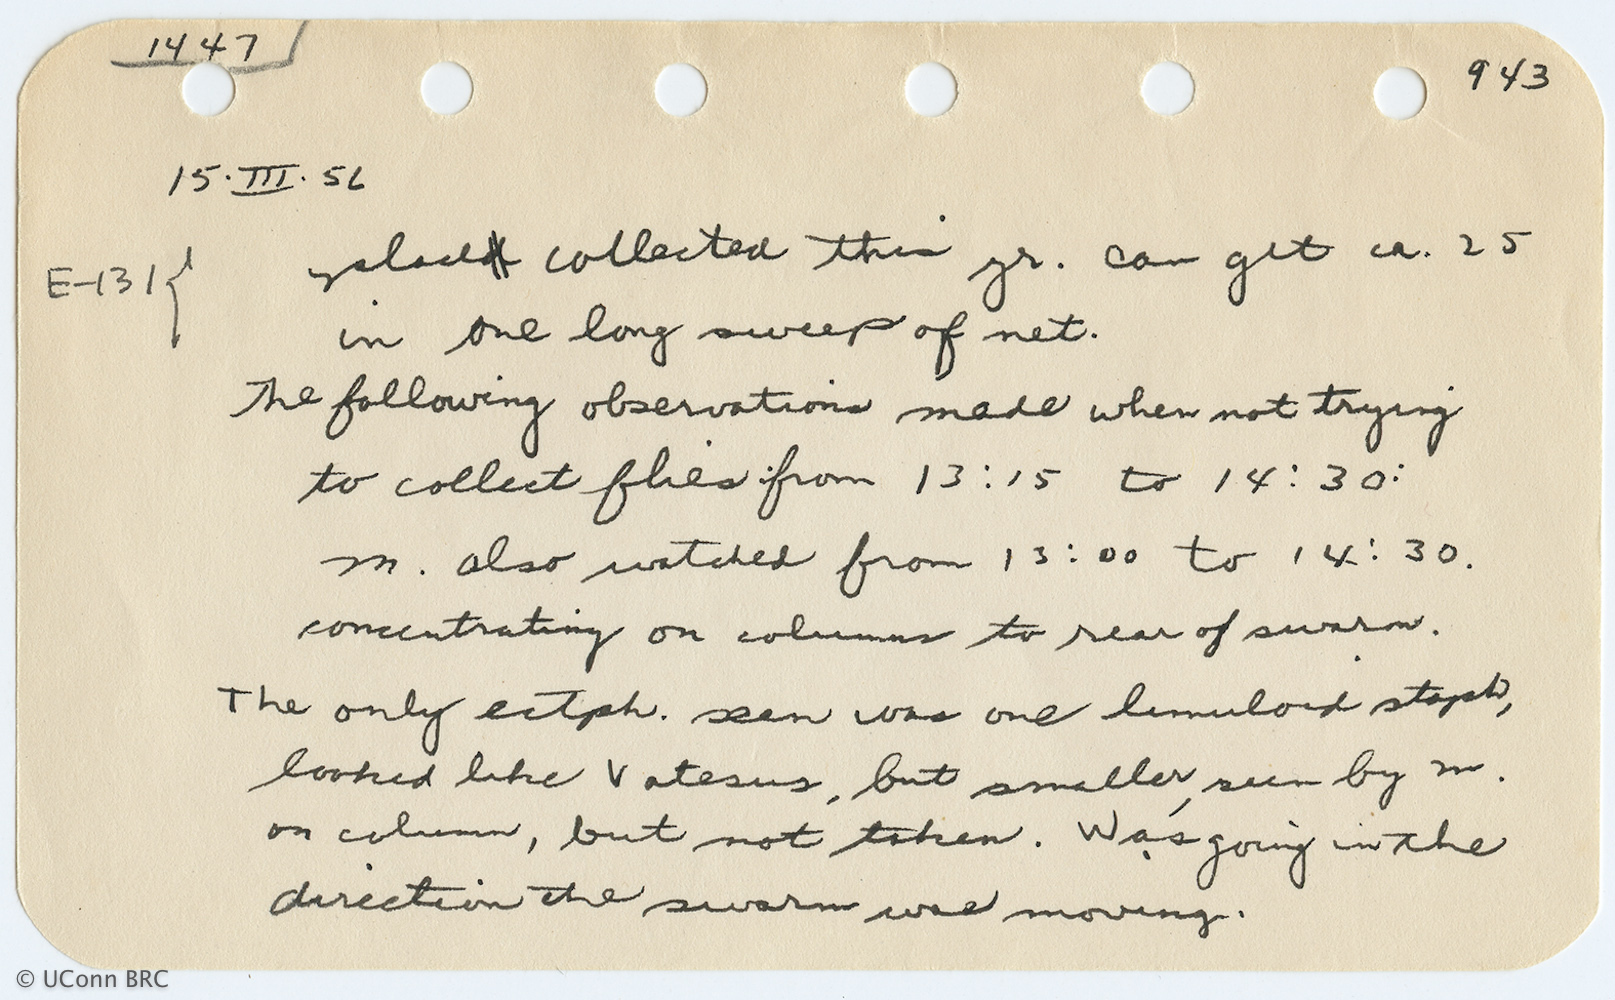 1447
943
15·III·56
E-131{ yslacd collected this yr. Can get ca. 25
in one long sweep of net.
The following observations made when not trying
to collect flies from 13:15 to 14:30:
M. also watched from 13:00 to 14:30.
concentrating on columns to rear of swarm.
The only ectph. seen was one limuloid staph,
looked like Vatesus, but smaller, seen by M.
on column, but not taken. Was going in the
direction the swarm was moving.
© UConn BRC